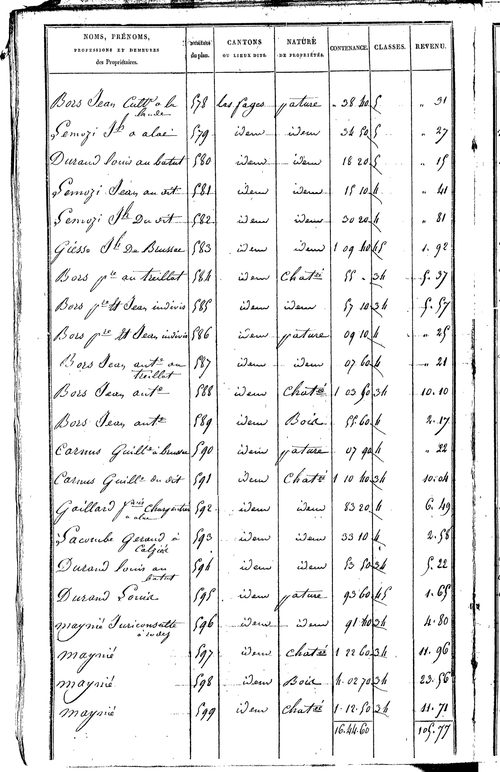 NOMS, PRÉNOMS, PROFESSIONS ET DEMEURES des Propriétaires. NUMÉROS du plan. CANTONS OU LIEUX DITS. NATURE DE PROPRIÉTÉS. CONTENANCE. CLASSES. REVENU.
Bors Jean Cultr a la 578 les fages pature " 38 40 5 " 31
Lemozi Jh a alac 579 idem idem 34 50 5 " 27
Durand louis au batut 580 idem idem 18 20 5 " 15
Lemozi Jean au dit 581 idem idem 15 10 4 " 41
Lemozi Jh Du dit 582 idem idem 30 20 4 " 81
Giesse Jh De Brussac 583 idem idem 1 09 40 45 1. 92
Bors pre au treillat 584 idem Chatré 55 " 34 5. 37
Bors pre et Jean indivis 585 idem idem 57 10 34 5. 57
Bors pre et Jean indivis 586 idem pature 09 10 4 " 25
Bors Jean ante au treillat 587 idem idem 07 60 4 " 21
Bors Jean ante 588 idem Chatré 1 03 50 34 10. 10
Bors Jean ante 589 idem Bois 55 60 4 2. 17
Carnus Guille a 590 idem pature 07 90 4 " 22
Carnus Guille du dit 591 idem Chatré 1 10 40 34 10. 04
Gaillard fois Charpentier a alac 592 idem idem 83 20 4 6. 49
Lacombe Geraud à 593 idem idem 33 10 4 2. 58
Durand louis au batut 594 idem idem 53 50 34 5. 22
Durand Louis 595 idem pature 93 60 45 1. 65
maynié Jurisconsulte à rodez 596 idem idem 91 40 34 4. 80
maynié 597 idem Chatré 1 22 60 34 11. 96
maynié 598 idem Bois 4. 02 70 34 23. 56
maynié 599 idem Chatré 1. 12. 50 34 11. 71
16. 44. 60 105. 77